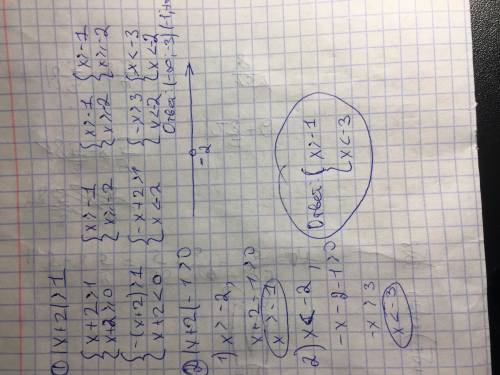 ① |x+2|>1
{x+2>1 {x>-1 {x>-1 {x>-1
{x+2≥0 {x≥-2 {x≥-2 {x≥-2
{-(x+2)>1 {-x+2>1 {-x>3 {x<-3
{x+2<0 {x<2 {x<-2 {x<-2
Ответ: (-∞;-3)(-1;+∞
② |x+2|-1>0
-2
1) x>-2,
x+2-1>0
x>-1
2) x<-2,
-x-2-1>0
-x>3
x<-3
Ответ: {x>-1
{x<-3